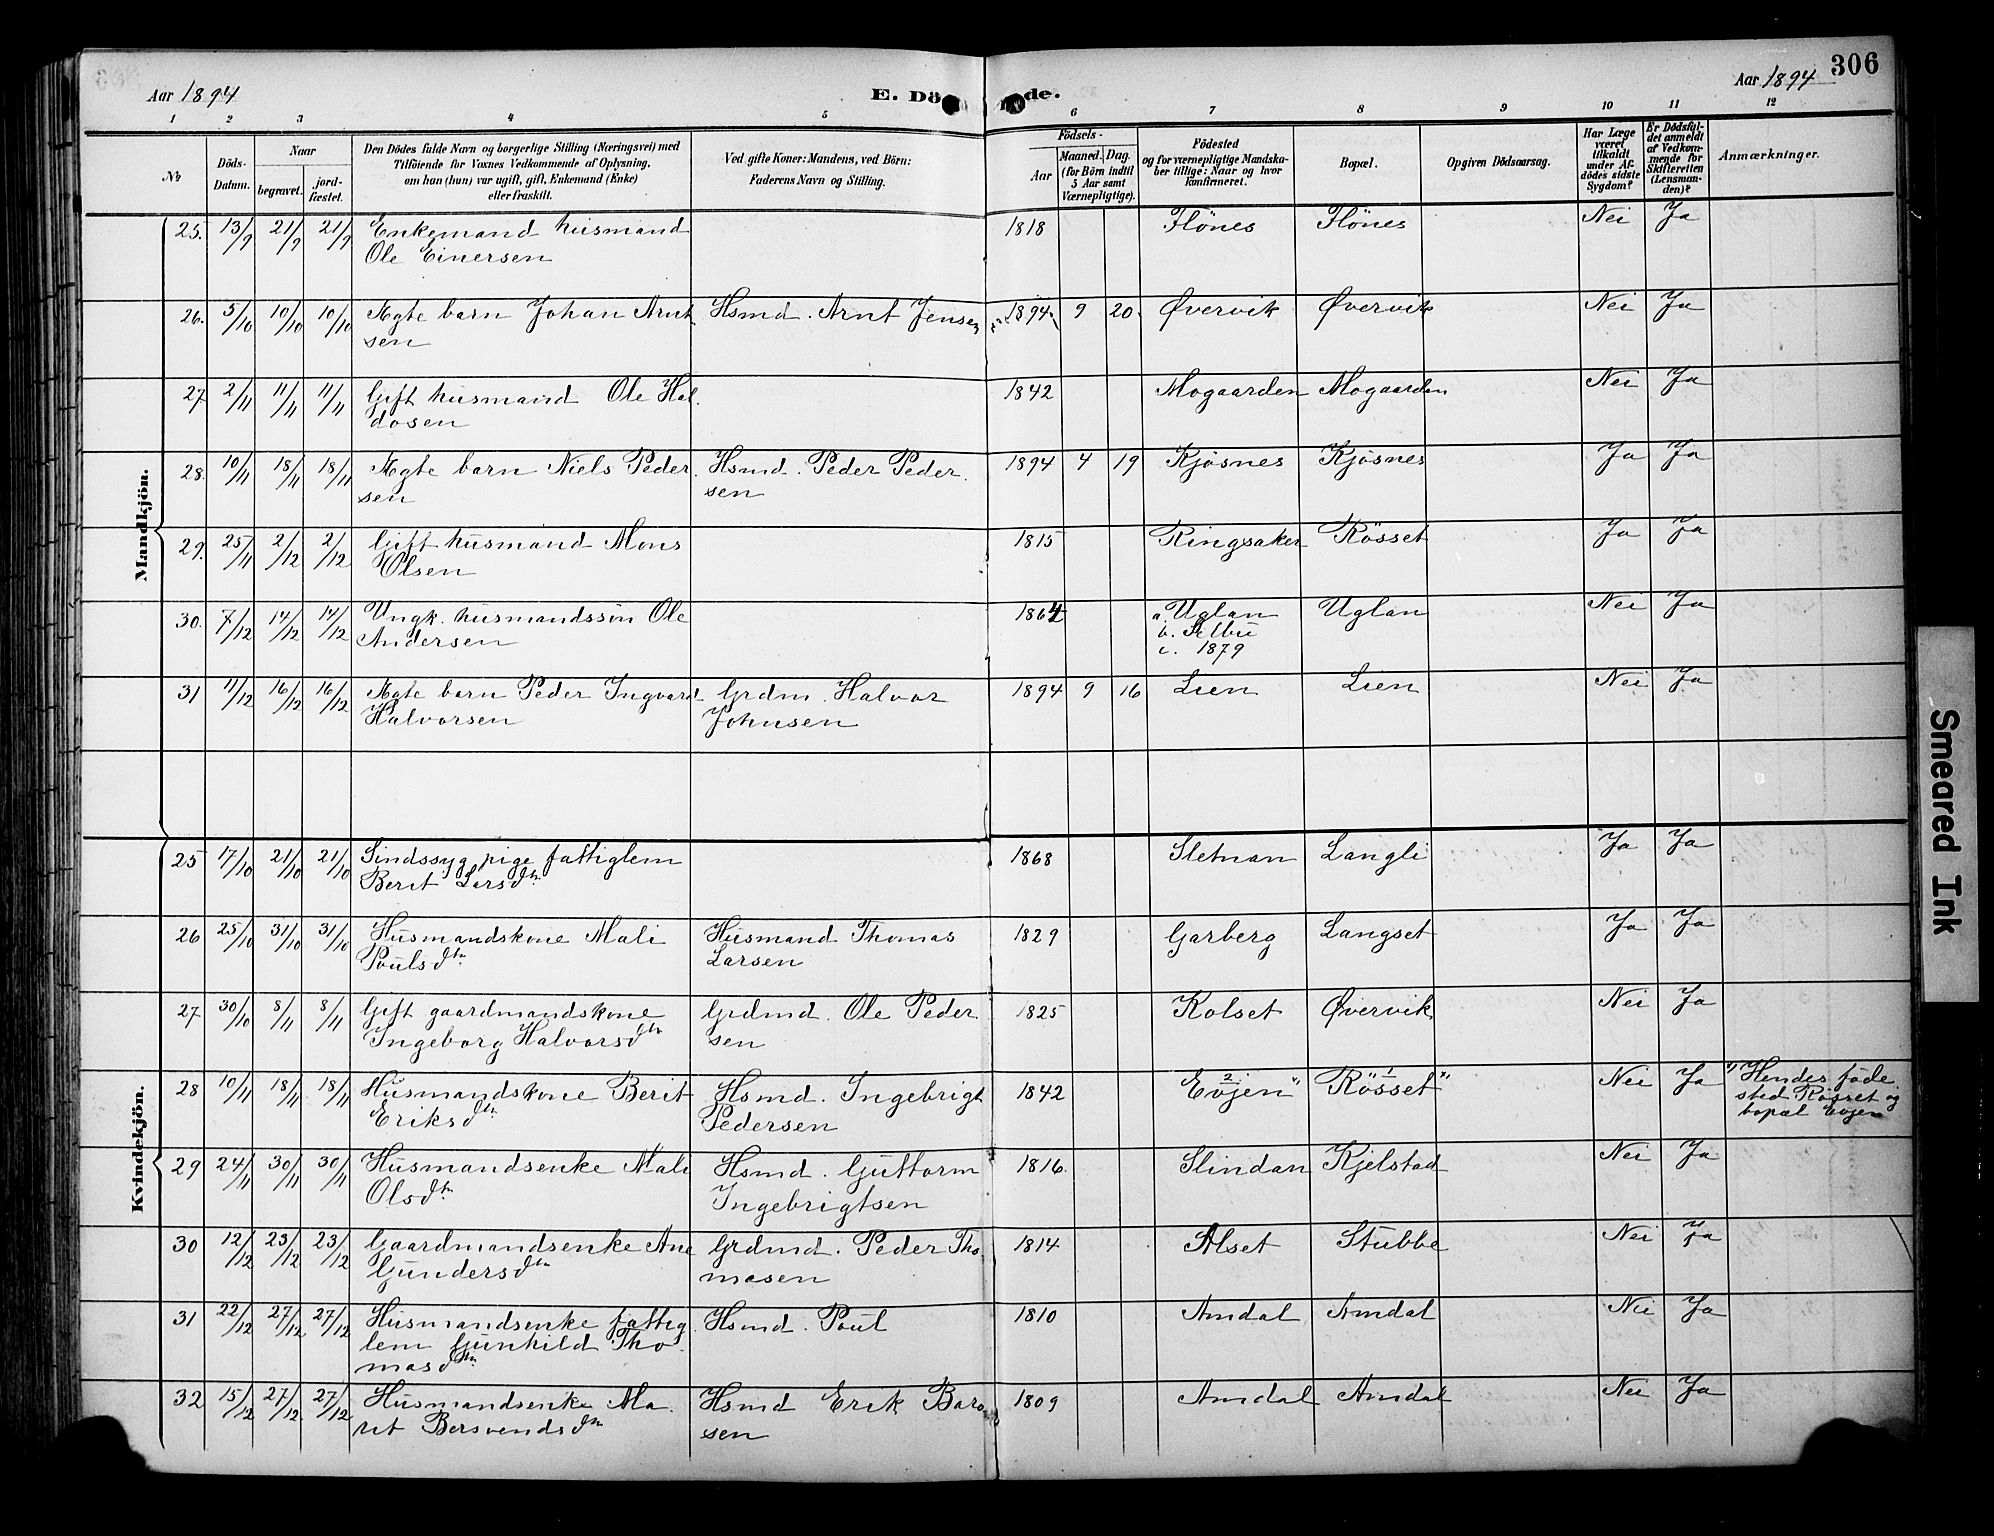 Aar 1894 E. Dö de. Aar 1894 306
1 2 3 4 5 6 7 8 9 10 11 12
No
Döds-
Datum.
Naar
begravet.
jord-
fæstet.
Den Dödes fulde Navn og borgerlige Stilling (Næringsvei) med
Tilföiende for Voxnes Vedkommende af Oplysning,
om han (hun) var ugift, gift, Enkemand (Enke)
eller fraskilt.
Ved gifte Koner: Mandens, ved Börn:
Faderens Navn og Stilling.
Födsels-
Aar
Maaned. Dag.
(for Börn indtil
5 Aar samt
Værnepligtige).
Födested
og for værnepligtige Mandska-
ber tillige: Naar og hvor
konfirmeret.
Bopæl.
Opgiven Dödsaarsag.
Har Læge
været
tilkaldt
under Af-
dödes sidste
Sygdom?
Er Dödsfal-
det anmeldt
af Vedkom-
mende for
Skifteretten
(Lensman-
den)?
Anmærkninger.
Mandkjön.
25. 13/9 21/9 21/9 Enkemand husmand 1818 Flönes Flönes Nei Ja
Ole Einersen
26. 5/10 10/10 10/10 Ægte barn Johan Arnt Hsmd. Arnt Jensen 1894 9 20. Øvervik Øvervik Nei Ja
sen
27 2/11 11/11 11/11 Gift husmand Ole Hal. 1842 Mogaarden Mogaarden Nei Ja
dosen
28. 10/11 18/11 18/11 Ægte barn Niels Peder Hsmd. Peder Peder. 1894 4 19 Kjösnes Kjösnes Ja Ja
sen sen
29. 25/11 2/12 2/12 Gift husmand Mons 1815 Ringsaker Rösset Ja Ja
Olsen
30. 7/12 14/12 14/12 Ungk. husmandssön Ole 1864 a. Uglan Uglan Nei Ja
Andersen b. Selbu
c. 1879
31 11/12 16/12 16/12 Ægte barn Peder Ingvard Grdm. Halvor 1894 9 16 Lien Lien Nei Ja
Halvorsen Johnsen
Kvindekjön.
25 17/10 21/10 21/10 Sindssyg pige fattiglem 1868 Sletnan Langli Ja Ja
Berit Larsdtr
26 25/10 31/10 31/10 Husmandskone Mali Husmand Thomas 1829 Garberg Langset Ja Ja
Poulsdtr Larsen
27 30/10 8/11 8/11 Gift gaardmandskone Grdmd. Ole Peder 1825 Kolset Øvervik Nei Ja
Ingeborg Halvorsdtr sen
28 10/11 18/11 18/11 Husmandskone Berit Hsmd. Ingebrigt 1842 2 Evjen" "1 Rösset" Nei Ja ") Hendes föde
Eriksdtr Pedersen sted Rösset og
bopæl Evjen
29 24/11 30/11 30/11 Husmandsenke Mali Hsmd. Guttorm 1816. Slindan Kjelstad Nei Ja
Olsdtr Ingebrigtsen
30 12/12 23/12 23/12 Gaardmandsenke Ane Grdmd. Peder Tho 1814 Alset Stubbe Nei Ja
Gundersdtr masen
31 22/12 27/12 27/12 Husmandsenke fattig Hsmd. Poul 1810 Amdal Amdal Nei Ja
lem Gunhild Tho
masdtr
32 15/12 27/12 27/12 Husmandsenke Ma. Hsmd Erik Baro 1809 Amdal Amdal Nei Ja
rit Bersvendsdtr sen
Smeared Ink